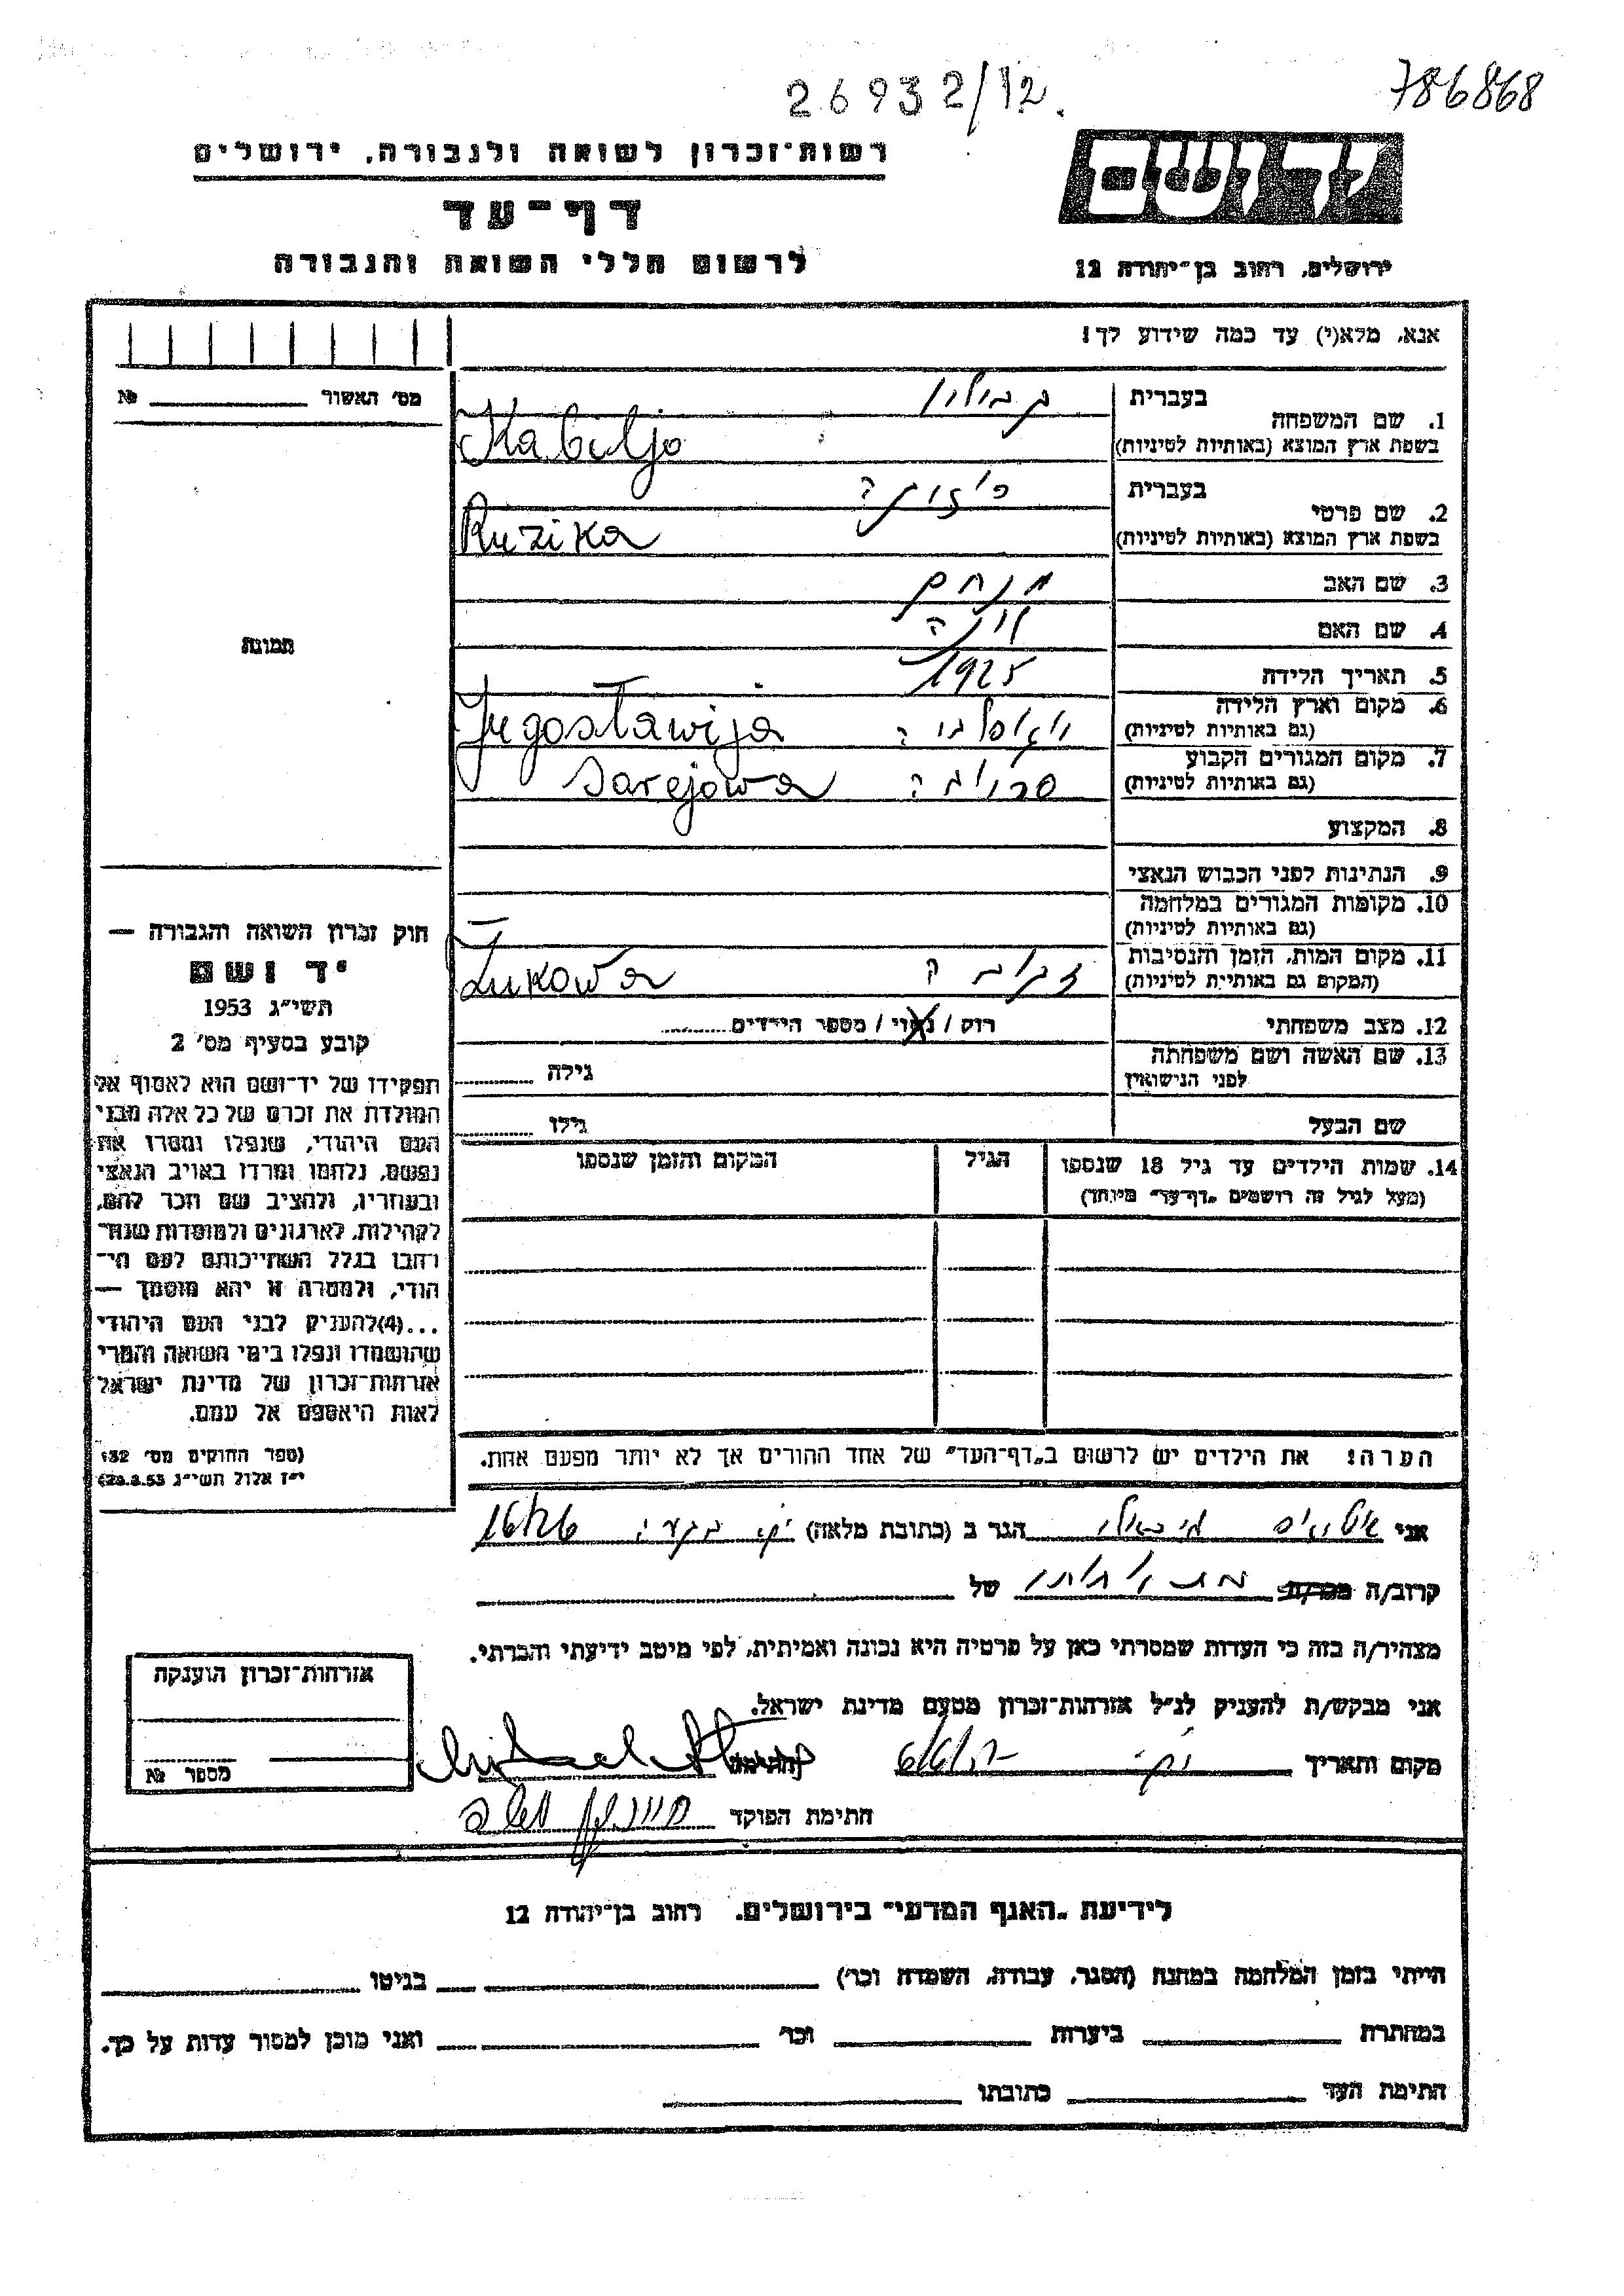 26932/12.
786868
רשות־זכרון לשואה ולגבורה, ירושלים
דף־עד
לרשום חללי השואה והגבורה
יד ושם
ירושלים, רחוב בן־יהודה 12
אנא, מלא(י) עד כמה שידוע לך!
מס׳ האשור №
תמונה
1. שם המשפחה
בעברית קבוליו
בשפת ארץ המוצא (באותיות לטיניות) Kabiljo
2. שם פרטי
בעברית
בשפת ארץ המוצא (באותיות לטיניות) Ruzika
3. שם האב מנחם
4. שם האם
5. תאריך הלידה 1925
6. מקום וארץ הלידה
(גם באותיות לטיניות) Jugostawija
7. מקום המגורים הקבוע
(גם באותיות לטיניות) Sarejowa
8. המקצוע
9. הנתינות לפני הכבוש הנאצי
10. מקומות המגורים במלחמה
(גם באותיות לטיניות)
11. מקום המות, הזמן והנסיבות
(המקום גם באותיות לטיניות) Zukowa
12. מצב משפחתי רוק / נשוי / מספר הילדים
13. שם האשה ושם משפחתה
לפני הנישואין גילה
שם הבעל גילו
14. שמות הילדים עד גיל 18 שנספו הגיל המקום והזמן שנספו
(מעל לגיל זה רושמים „דף־עד״ מיוחד)
הערה! את הילדים יש לרשום ב„דף־העד״ של אחד ההורים אך לא יותר מפעם אחת.
חוק זכרון השואה והגבורה —
יד ושם
תשי״ג 1953
קובע בסעיף מס׳ 2
תפקידו של יד־ושם הוא לאסוף אל
המולדת את זכרם של כל אלה מבני
העם היהודי, שנפלו ומסרו את
נפשם, נלחמו ומרדו באויב הנאצי
ובעוזריו, ולהציב שם וזכר להם,
לקהילות, לארגונים ולמוסדות שנח־
רבו בגלל השתייכותם לעם הי־
הודי, ולמטרה זו יהא מוסמך —
...(4)להעניק לבני העם היהודי
שהושמדו ונפלו בימי השואה והמרי
אזרחות־זכרון של מדינת ישראל
לאות היאספם אל עמם.
(ספר החוקים מס׳ 132
י״ז אלול תשי״ג 28.8.53)
אני הגר ב (כתובת מלאה)
קרוב/ה מכר/ת של
מצהיר/ה בזה כי העדות שמסרתי כאן על פרטיה היא נכונה ואמיתית, לפי מיטב ידיעתי והכרתי.
אני מבקש/ת להעניק לנ״ל אזרחות־זכרון מטעם מדינת ישראל.
מקום ותאריך חתימה
חתימת הפוקד
אזרחות־זכרון הוענקה
מספר №
לידיעת „האגף המדעי״ בירושלים. רחוב בן־יהודה 12
הייתי בזמן המלחמה במחנה (הסגר, עבודה, השמדה וכו׳) בגיטו
במחתרת ביערות וכו׳ ואני מוכן למסור עדות על כך.
חתימת העד כתובתו